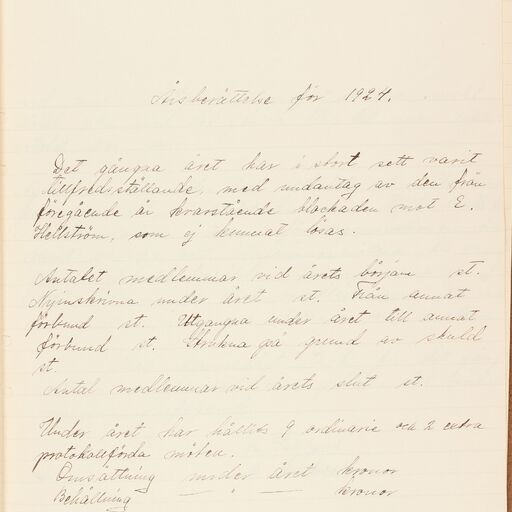 Årsberättelse för 1924.
Det gångna året har i stort sett varit
tillfredsställande, med undantag av den från
föregående år kvarstående blockaden mot E.
Hellström, som ej kunnat lösas.
Antalet medlemmar vid årets början st.
Nyinskrivna under året st. Från annat
förbund st. Utgångna under året till annat
förbund st. Strukna på grund av skuld
st.
Antal medlemmar vid årets slut st.
Under året har hållits 9 ordinarie och 2 extra
protokollförda möten.
Omsättning under året kronor
Behållning — " — kronor